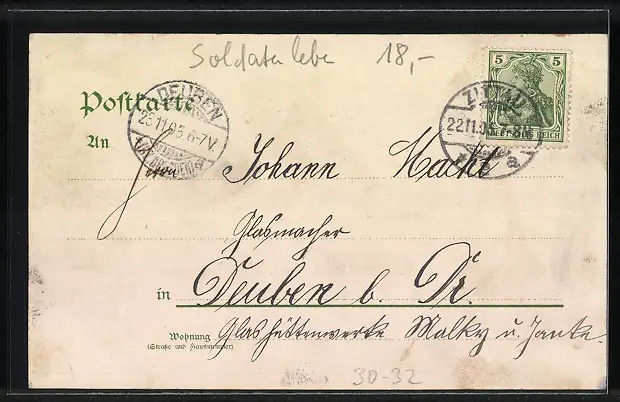 Soldatenlebe 18,-
Postkarte
An
DEUBEN
23.11.05.6-7V.
ZITTAU
22.11.05
a
5 5
DEUTSCHES REICH
Herrn Johann Hackl
Glasmacher
in Deuben b. Dr.
Wohnung Glashüttenwerke Malky u. Janke.
(Straße und Hausnummer)
30-32